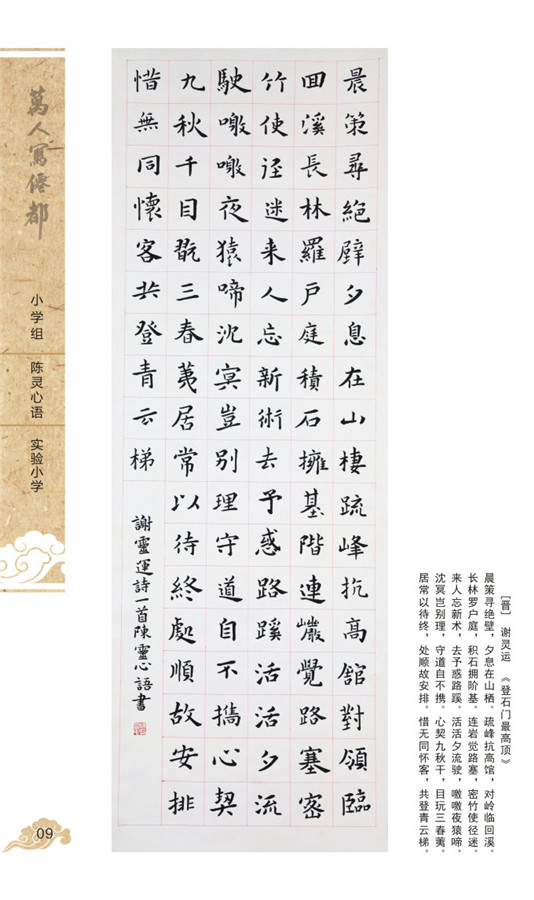 萬人寫僊都
小学组
陈灵心语
实验小学
09
晨策尋絕壁夕息在山棲疏峰抗高舘對領臨
囬溪長林羅戶庭積石擁基階連巖覺路塞密
竹使迳迷来人忘新術去予惑路蹊活活夕流
駛噭噭夜猿啼沈冥豈别理守道自不攜心契
九秋千目翫三春荑居常以待終處順故安排
惜無同懷客共登青云梯
謝靈運詩一首陳靈心語書
[晋] 谢灵运 《登石门最高顶》
晨策寻绝壁，夕息在山栖。疏峰抗高馆，对岭临回溪。
长林罗户庭，积石拥阶基。连岩觉路塞，密竹使径迷。
来人忘新术，去予惑路蹊。活活夕流驶，噭噭夜猿啼。
沈冥岂别理，守道自不携。心契九秋干，目玩三春荑。
居常以待终，处顺故安排。惜无同怀客，共登青云梯。